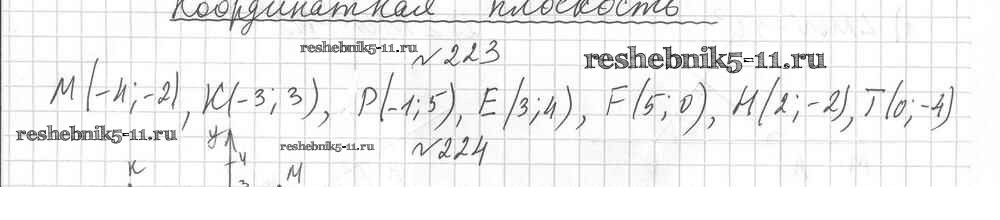 Координатная плоскость
reshebnik5-11.ru
№223
reshebnik5-11.ru
М(-4;-2), К(-3; 3), Р(-1; 5), Е(3;4), F(5; 0), Н(2; -2), Т(0; -4)
reshebnik5-11.ru
у
reshebnik5-11.ru
№224
К
4
М
3